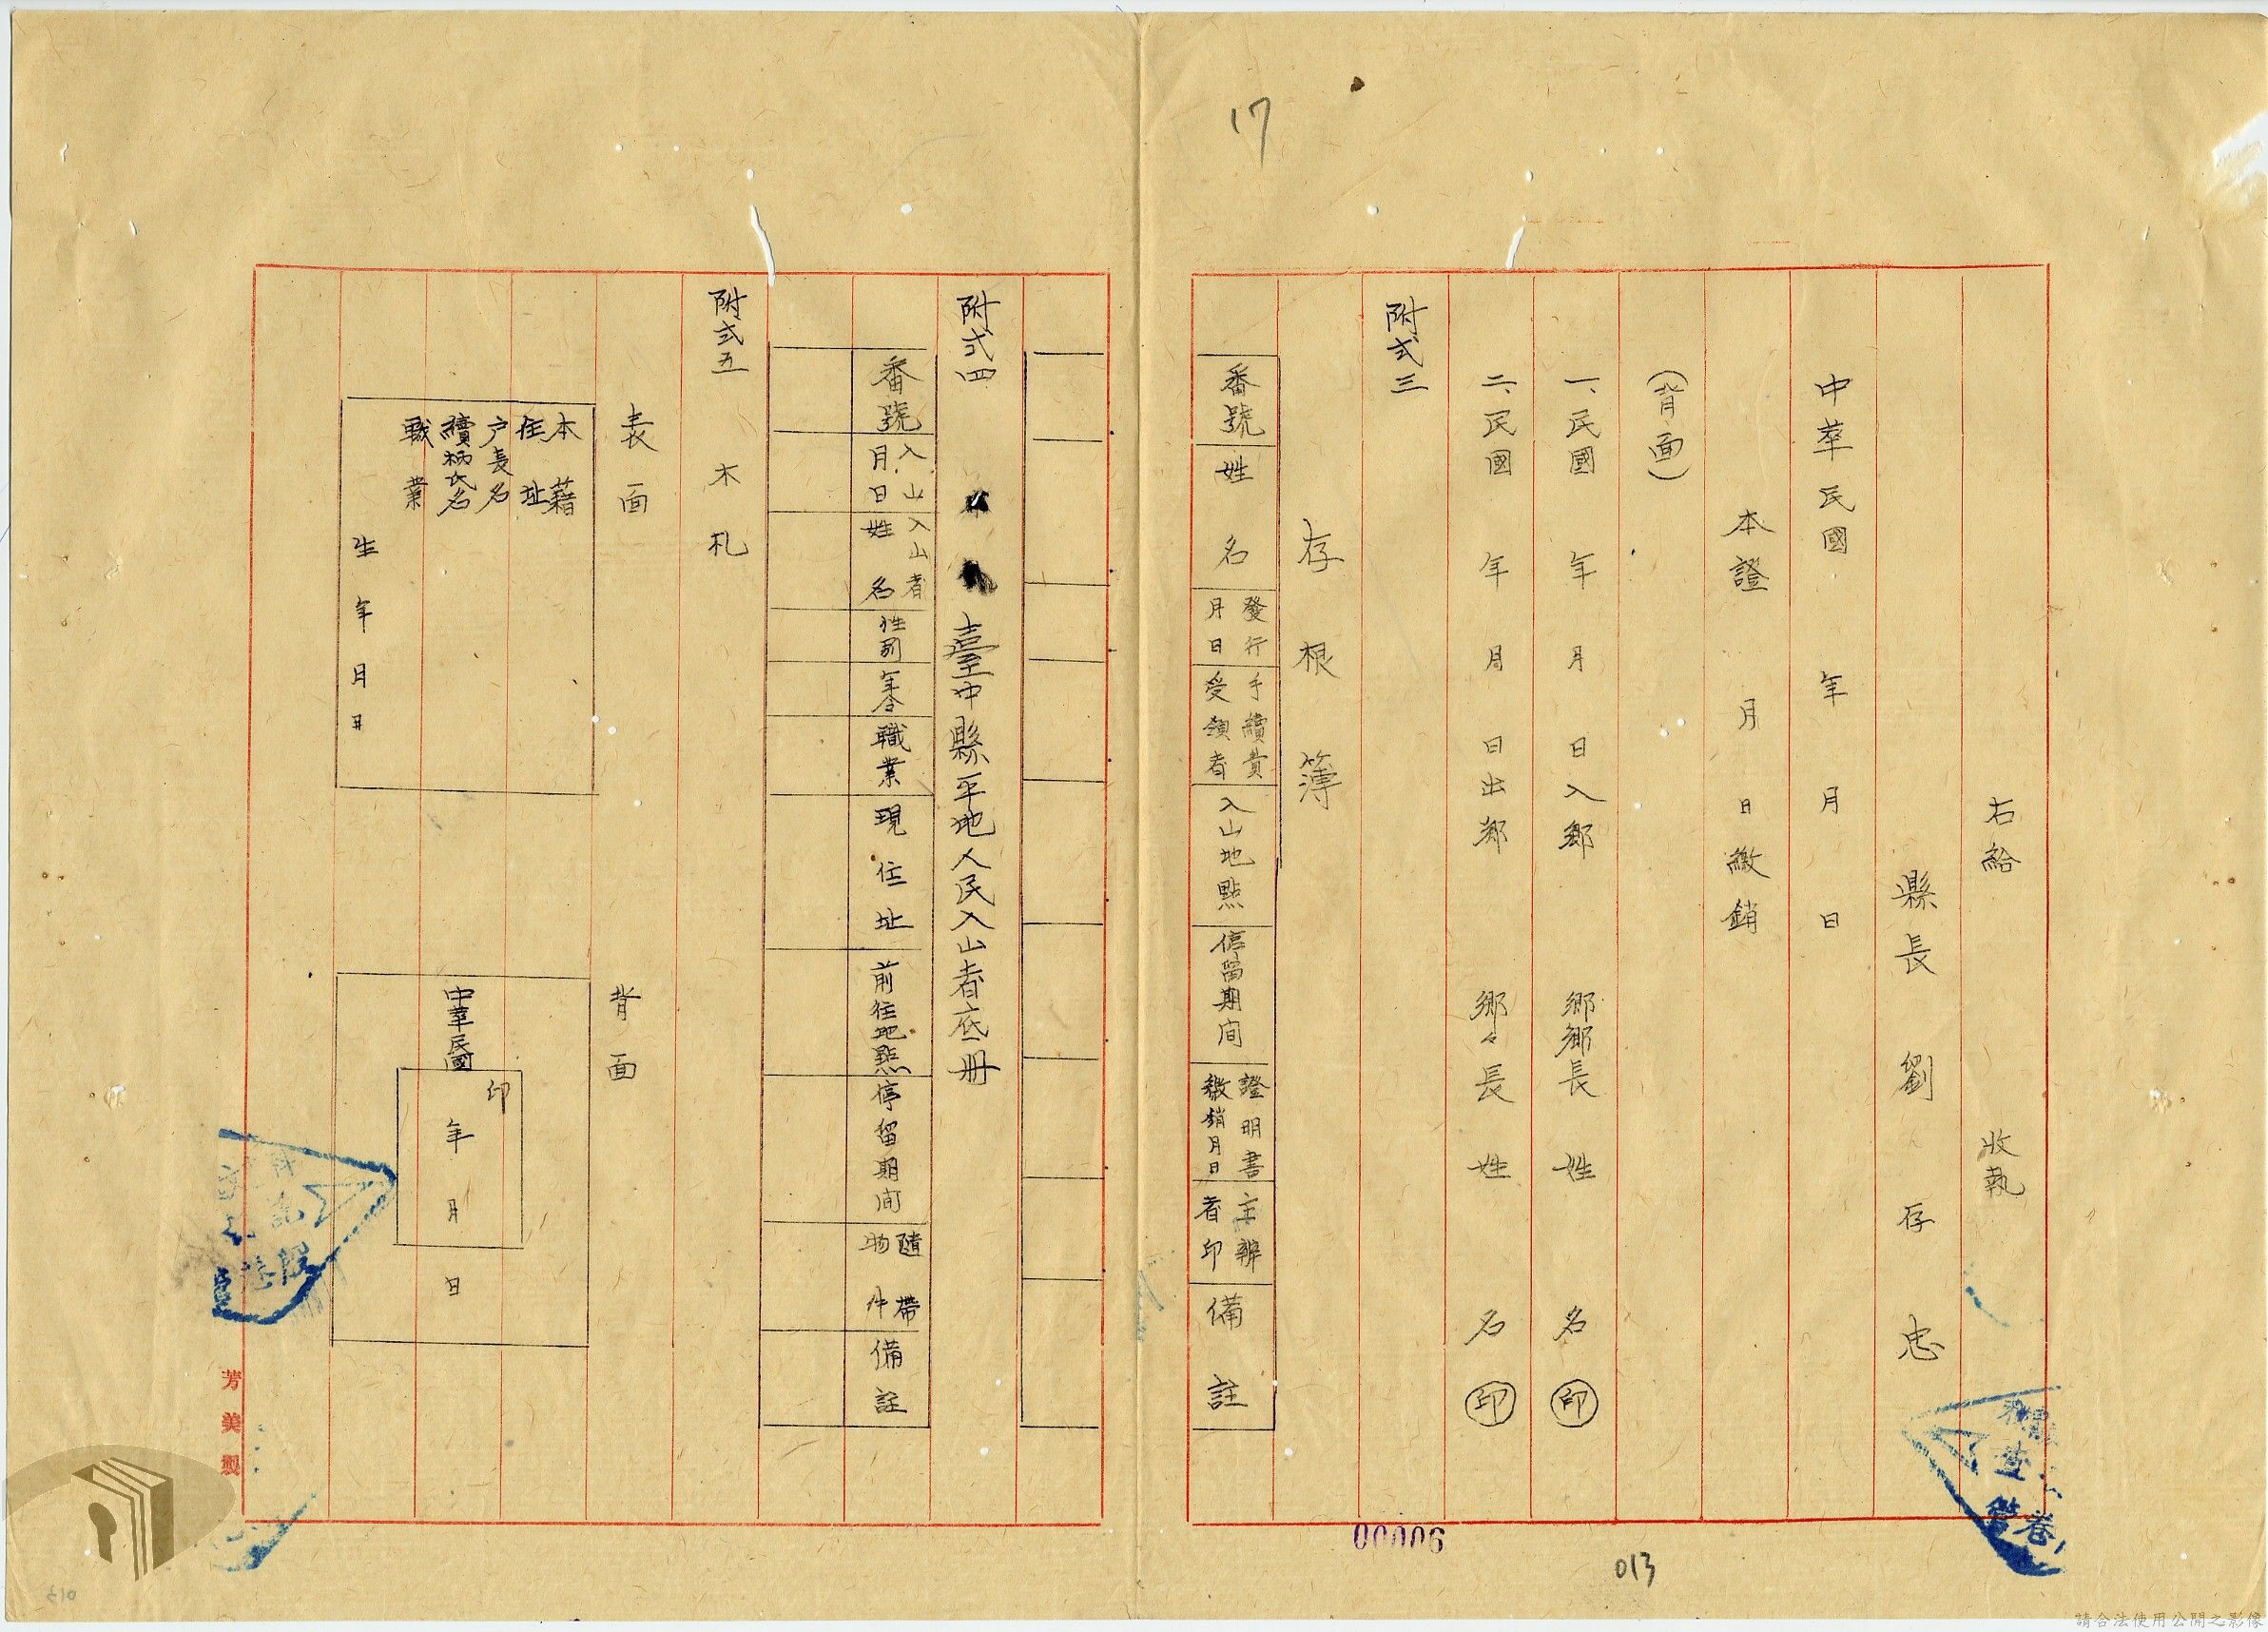 17
右給　收執
縣長　劉存忠
中華民國　年　月　日
本證　月　日繳銷
(背面)
一、民國　年　月　日入鄉　鄉鄉長　姓　名　印
二、民國　年　月　日出鄉　鄉々長　姓　名　印
附式三
存根簿
番號
姓名
發行月日
手續費受領者
入山地點
停留期間
證明書繳銷月日
主辦者印
備註
附式四　臺中縣平地人民入山者底冊
番號
入山月日
入山者姓名
性別
年令
職業
現住址
前往地點
停留期間
隨帶物件
備註
附式五　木札
表面
本籍
住址
戶長名
續柄氏名
職業
生年月日
背面
印
中華民國　年　月　日
芳美製
00006
013
請合法使用公開之影像